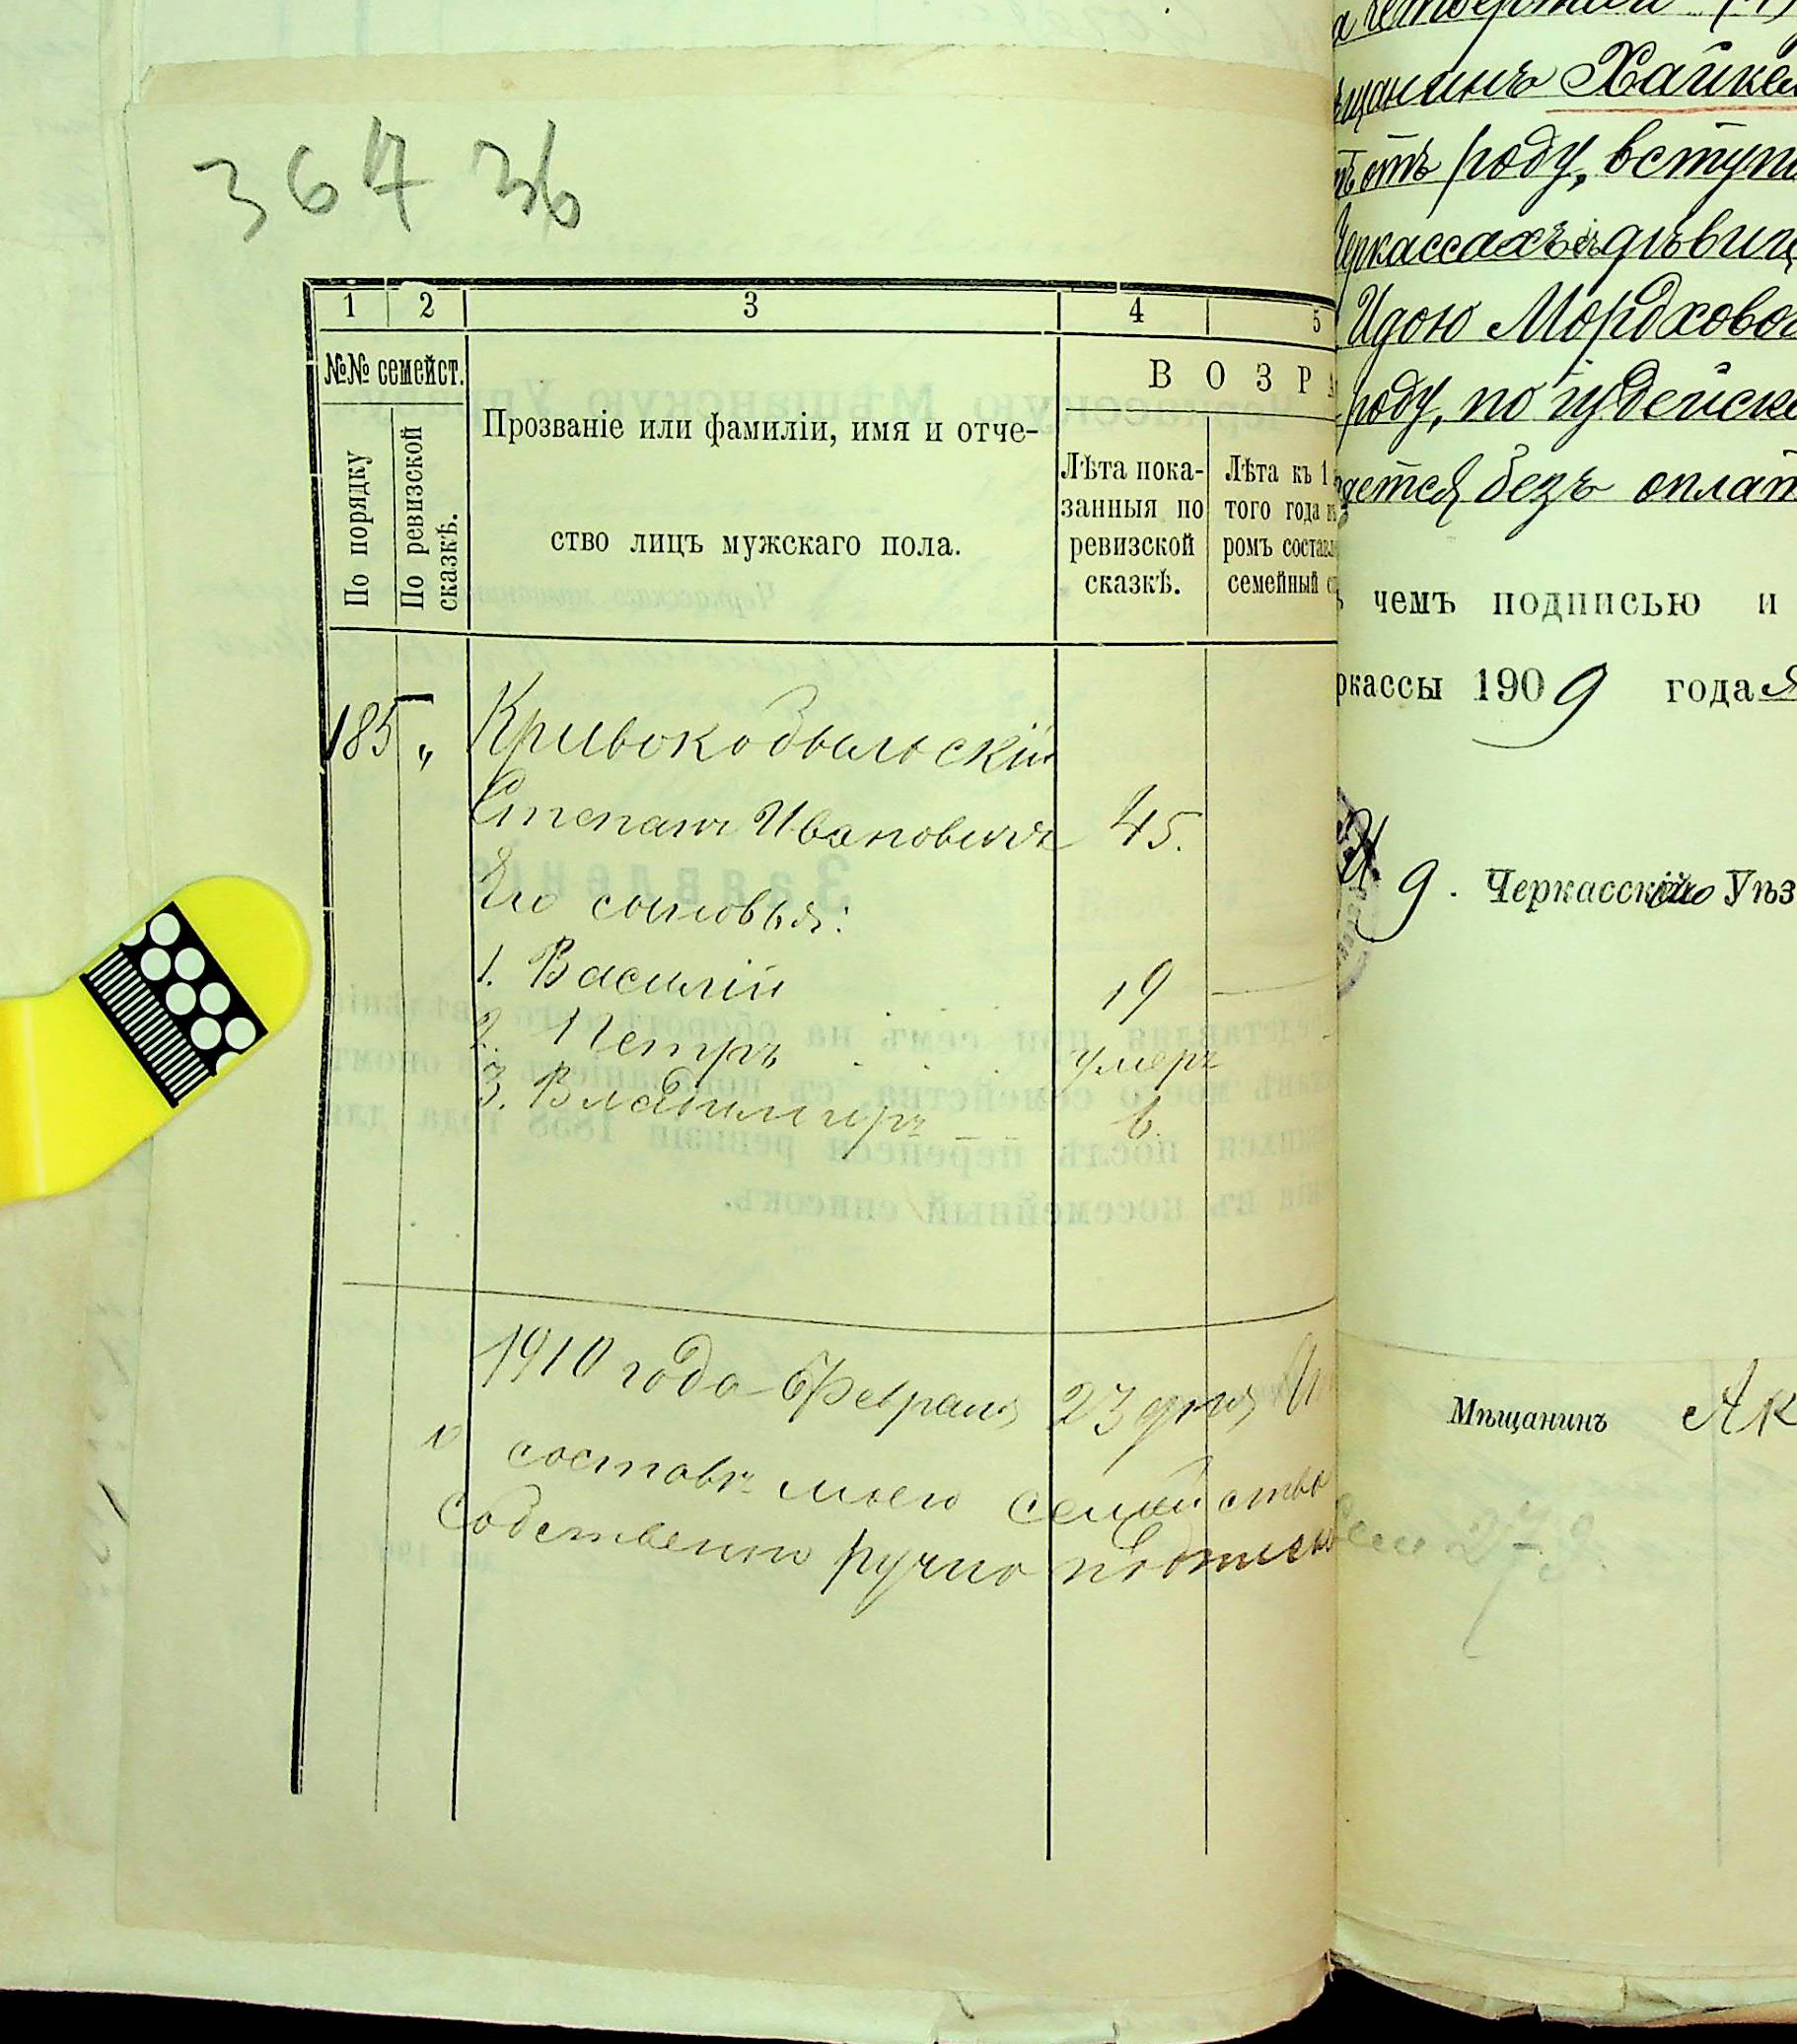 364 36
1 2 3 4 5
№№ семейст.
По порядку
По ревизской сказкѣ.
Прозваніе или фамиліи, имя и отче-
ство лицъ мужскаго пола.
В О З Р
Лѣта пока-
занныя по
ревизской
сказкѣ.
Лѣта къ 1
того года
ромъ состав
семейный
185 „ Кривокобыльскій
Степанъ Ивановичъ 45.
Его сыновья:
1. Василій 19
2. Петръ умеръ
3. Владимиръ 6.
1910 года Февраля 23 дня
о составѣ моего семейства
собственно ручно подписью
щанинъ Хайкел
отъ роду, вступи
Черкассахъ съ дѣвиц
Идою Мордховой
роду, по іудейско
дается безъ оплат
чемъ подписью и
ркассы 1909 года
9. Черкасскій Уѣз
Мѣщанинъ Ак